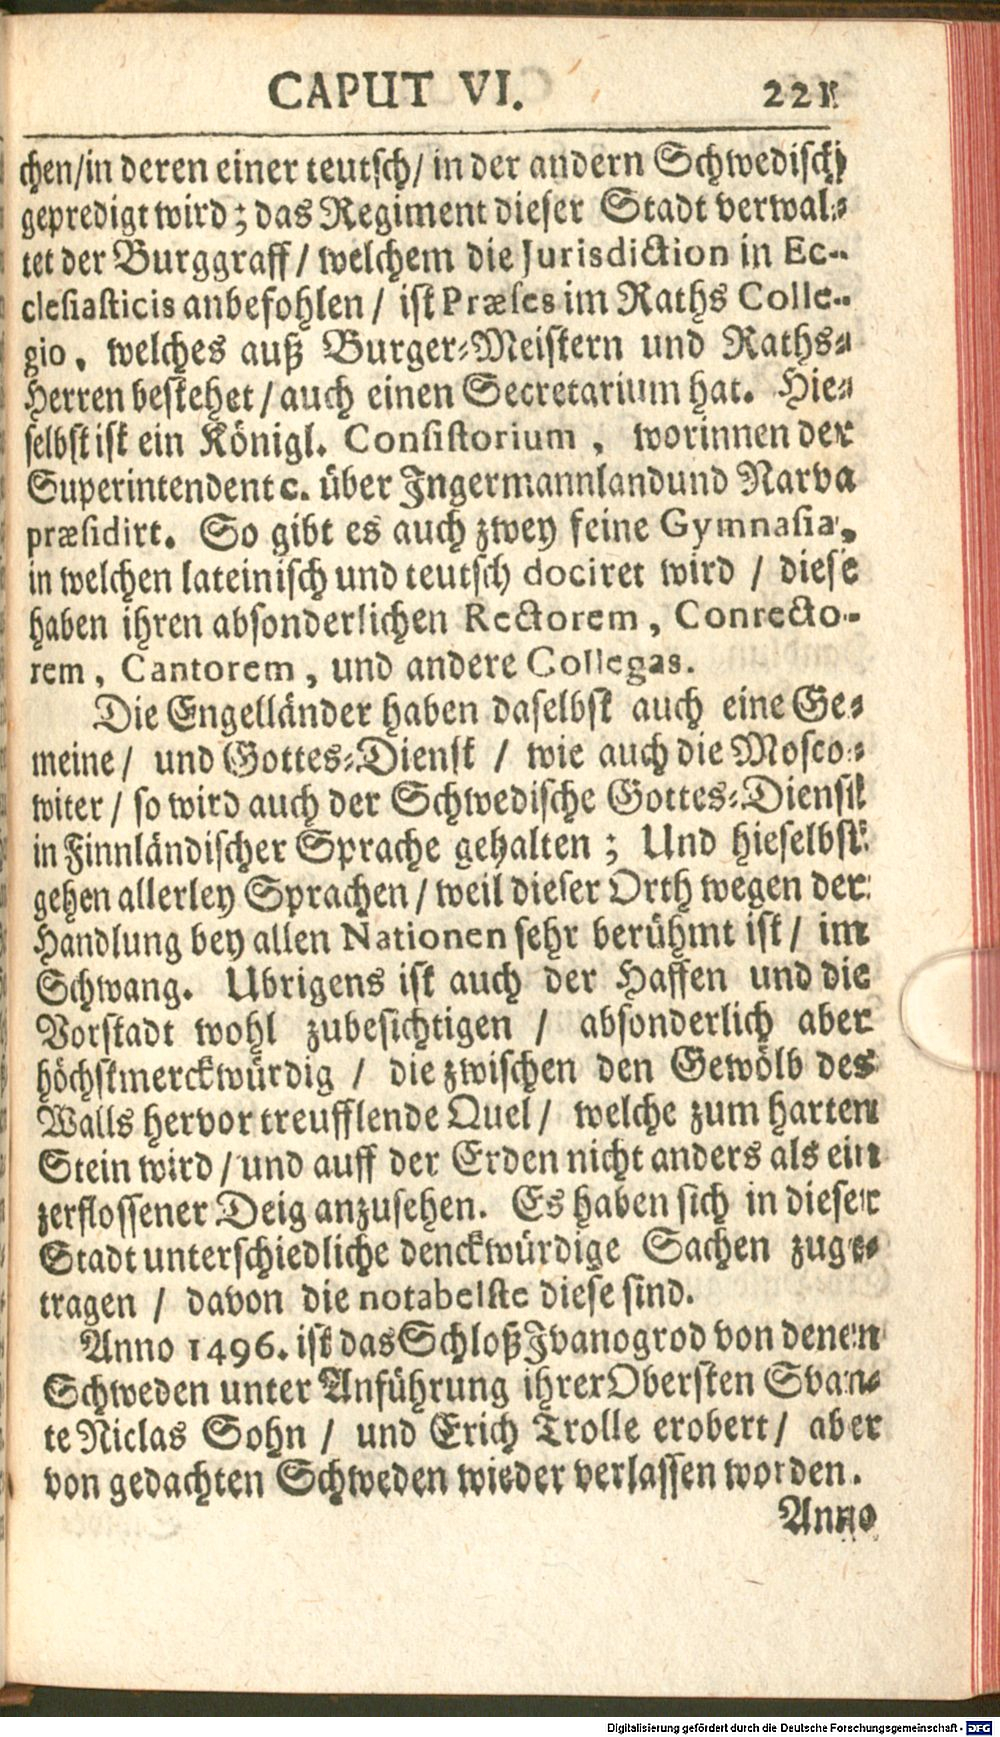 CAPUT VI. 221
chen/in deren einer teutsch/ in der andern Schwedisch
gepredigt wird; das Regiment dieser Stadt verwal-
tet der Burggraff/ welchem die Jurisdiction in Ec-
clesiasticis anbefohlen / ist Præses im Raths Colle-
gio, welches auß Burger-Meistern und Raths-
Herren bestehet/ auch einen Secretarium hat. Hie-
selbst ist ein Königl. Consistorium, worinnen der
Superintendent c. über Ingermannland und Narva
præsidirt. So gibt es auch zwey feine Gymnasia,
in welchen lateinisch und teutsch dociret wird / diese
haben ihren absonderlichen Rectorem, Conrecto-
rem, Cantorem, und andere Collegas.
Die Engelländer haben daselbst auch eine Ge-
meine/ und Gottes-Dienst / wie auch die Mosco-
witer/ so wird auch der Schwedische Gottes-Dienst
in Finnländischer Sprache gehalten; Und hieselbst
gehen allerley Sprachen/ weil dieser Orth wegen der
Handlung bey allen Nationen sehr berühmt ist/ im
Schwang. Ubrigens ist auch der Haffen und die
Vorstadt wohl zubesichtigen / absonderlich aber
höchstmerckwürdig / die zwischen den Gewölb des
Walls hervor treufflende Quel/ welche zum harten
Stein wird/ und auff der Erden nicht anders als ein
zerflossener Deig anzusehen. Es haben sich in dieser
Stadt unterschiedliche denckwürdige Sachen zuge-
tragen / davon die notabelste diese sind.
Anno 1496. ist das Schloß Ivanogrod von denen
Schweden unter Anführung ihrer Obersten Svan-
te Niclas Sohn / und Erich Trolle erobert/ aber
von gedachten Schweden wieder verlassen worden.
Anno
Digitalisierung gefördert durch die Deutsche Forschungsgemeinschaft - DFG